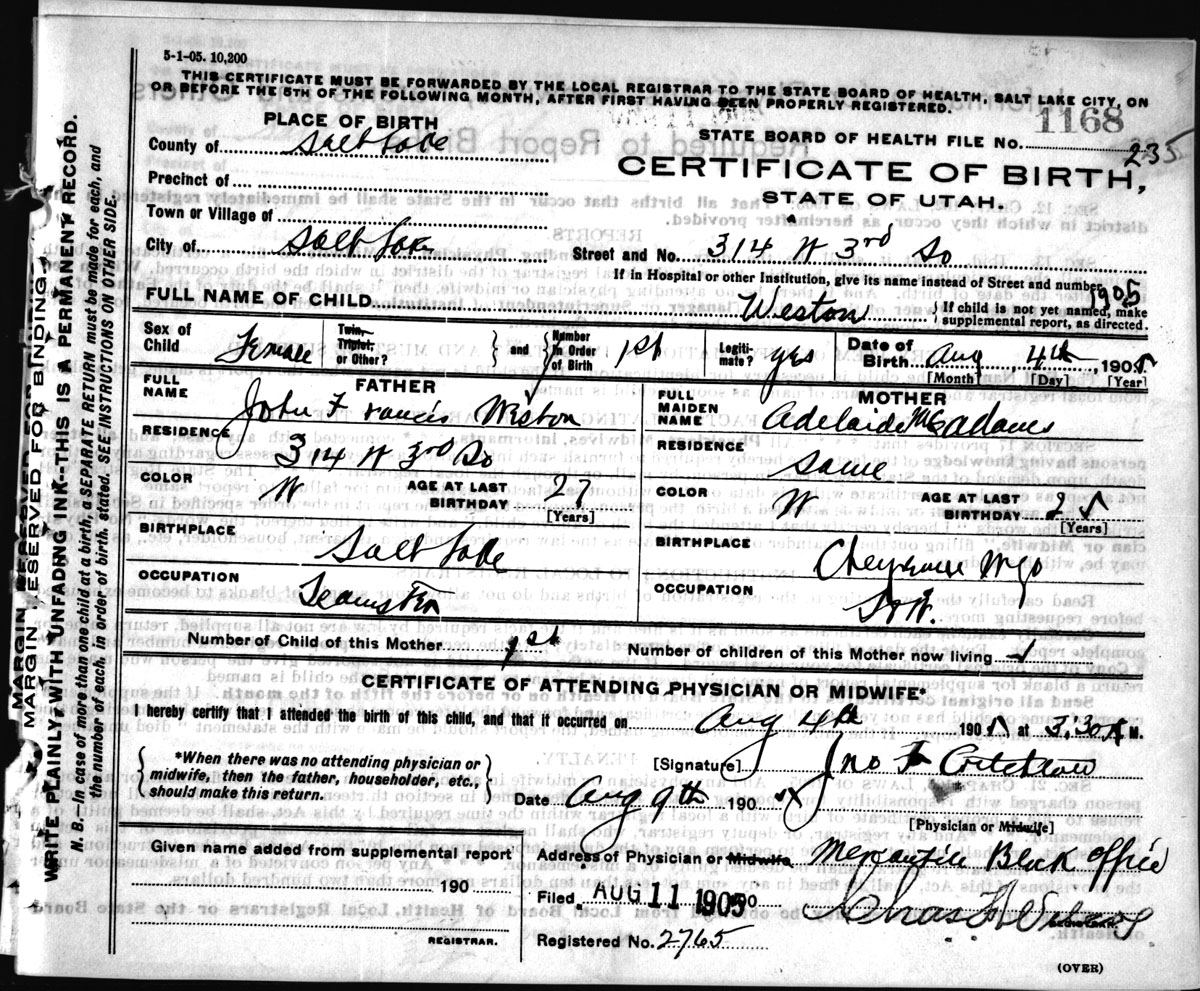 5-1-05. 10,200
THIS CERTIFICATE MUST BE FORWARDED BY THE LOCAL REGISTRAR TO THE STATE BOARD OF HEALTH, SALT LAKE CITY, ON
OR BEFORE THE 5TH OF THE FOLLOWING MONTH, AFTER FIRST HAVING BEEN PROPERLY REGISTERED.
PLACE OF BIRTH
STATE BOARD OF HEALTH FILE NO. 1168
235
County of Salt Lake
CERTIFICATE OF BIRTH,
STATE OF UTAH.
Precinct of
Town or Village of
City of Salt Lake
Street and No. 314 W 3rd So
If in Hospital or other Institution, give its name instead of Street and number.
1905
FULL NAME OF CHILD Weston
{If child is not yet named, make
supplemental report, as directed.
Sex of Child Female
Twin, Triplet, or Other?
and
Number in Order of Birth 1st
Legitimate? yes
Date of Birth Aug 4th 1905
[Month] [Day] [Year]
FATHER
FULL NAME John Francis Weston
RESIDENCE 314 W 3rd So
COLOR W
AGE AT LAST BIRTHDAY 27
[Years]
BIRTHPLACE Salt Lake
OCCUPATION Teamster
MOTHER
FULL MAIDEN NAME Adelaide McAdams
RESIDENCE Same
COLOR W
AGE AT LAST BIRTHDAY 25
[Years]
BIRTHPLACE Cheyenne Wyo
OCCUPATION H.W.
Number of Child of this Mother 1st
Number of children of this Mother now living 1
CERTIFICATE OF ATTENDING PHYSICIAN OR MIDWIFE*
I hereby certify that I attended the birth of this child, and that it occurred on Aug 4th 1905 at 3:30 A M.
*When there was no attending physician or
midwife, then the father, householder, etc.,
should make this return.
[Signature] Jno F Critchlow
Date Aug 9th 1905
[Physician or Midwife]
Given name added from supplemental report
190
REGISTRAR.
Address of Physician or Midwife Mercantile Block Office
Filed AUG 11 1905
REGISTRAR.
Registered No. 2765
(OVER)
MARGIN RESERVED FOR BINDING
MARGIN RESERVED FOR BINDING
WRITE PLAINLY WITH UNFADING INK--THIS IS A PERMANENT RECORD.
N. B.--In case of more than one child at a birth, a SEPARATE RETURN must be made for each, and
the number of each, in order of birth, stated. SEE INSTRUCTIONS ON OTHER SIDE.